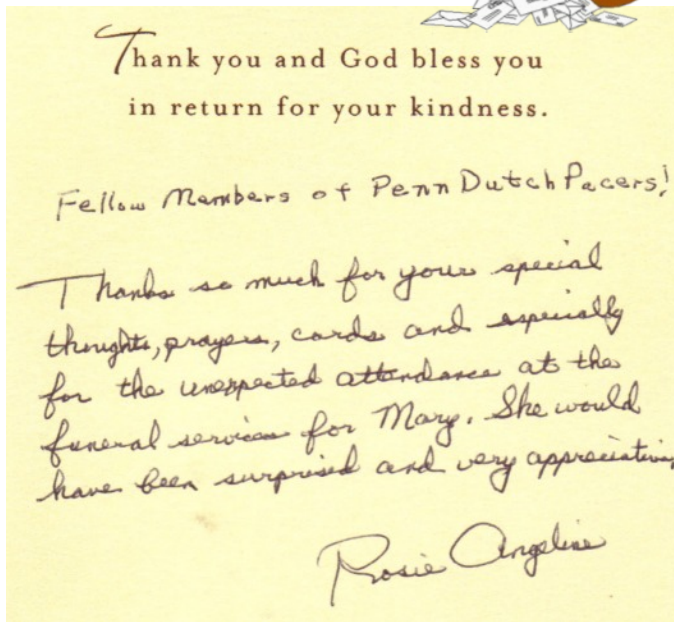 Thank you and God bless you
in return for your kindness.
Fellow Members of Penn Dutch Pacers!
Thanks so much for your special
thoughts, prayers, cards and especially
for the unexpected attendance at the
funeral services for Mary. She would
have been surprised and very
Rosie Angeline